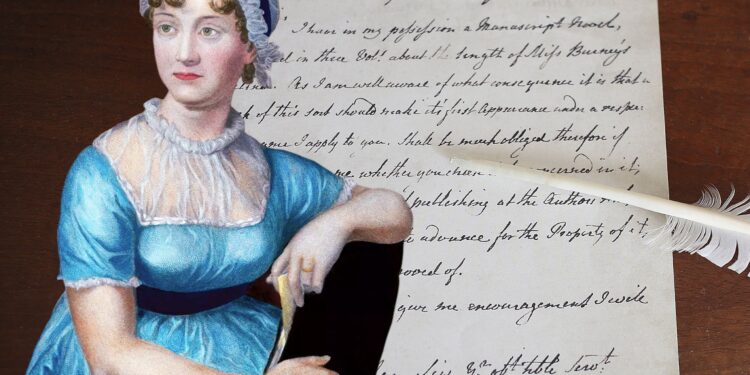 I have in my possession a Manuscript Novel,
ed in three Vol.s about the length of Miss Burney's
. As I am well aware of what consequence it is that a
k of this sort should make it's first Appearance under a respec-
ame I apply to you. Shall be much obliged therefore if
me whether you chuse concerned in it;
publishing at the Author
advance for the Property of it,
oved of.
give me encouragement I will